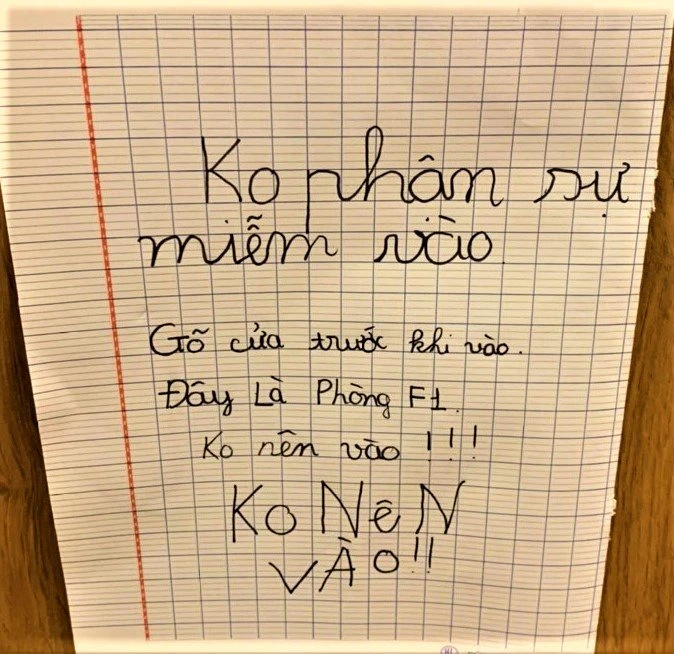 Ko phân sự
miễm vào
Gõ cửa trước khi vào.
Đây Là Phòng F1.
Ko nên vào !!!
Ko NêN
VÀO!!